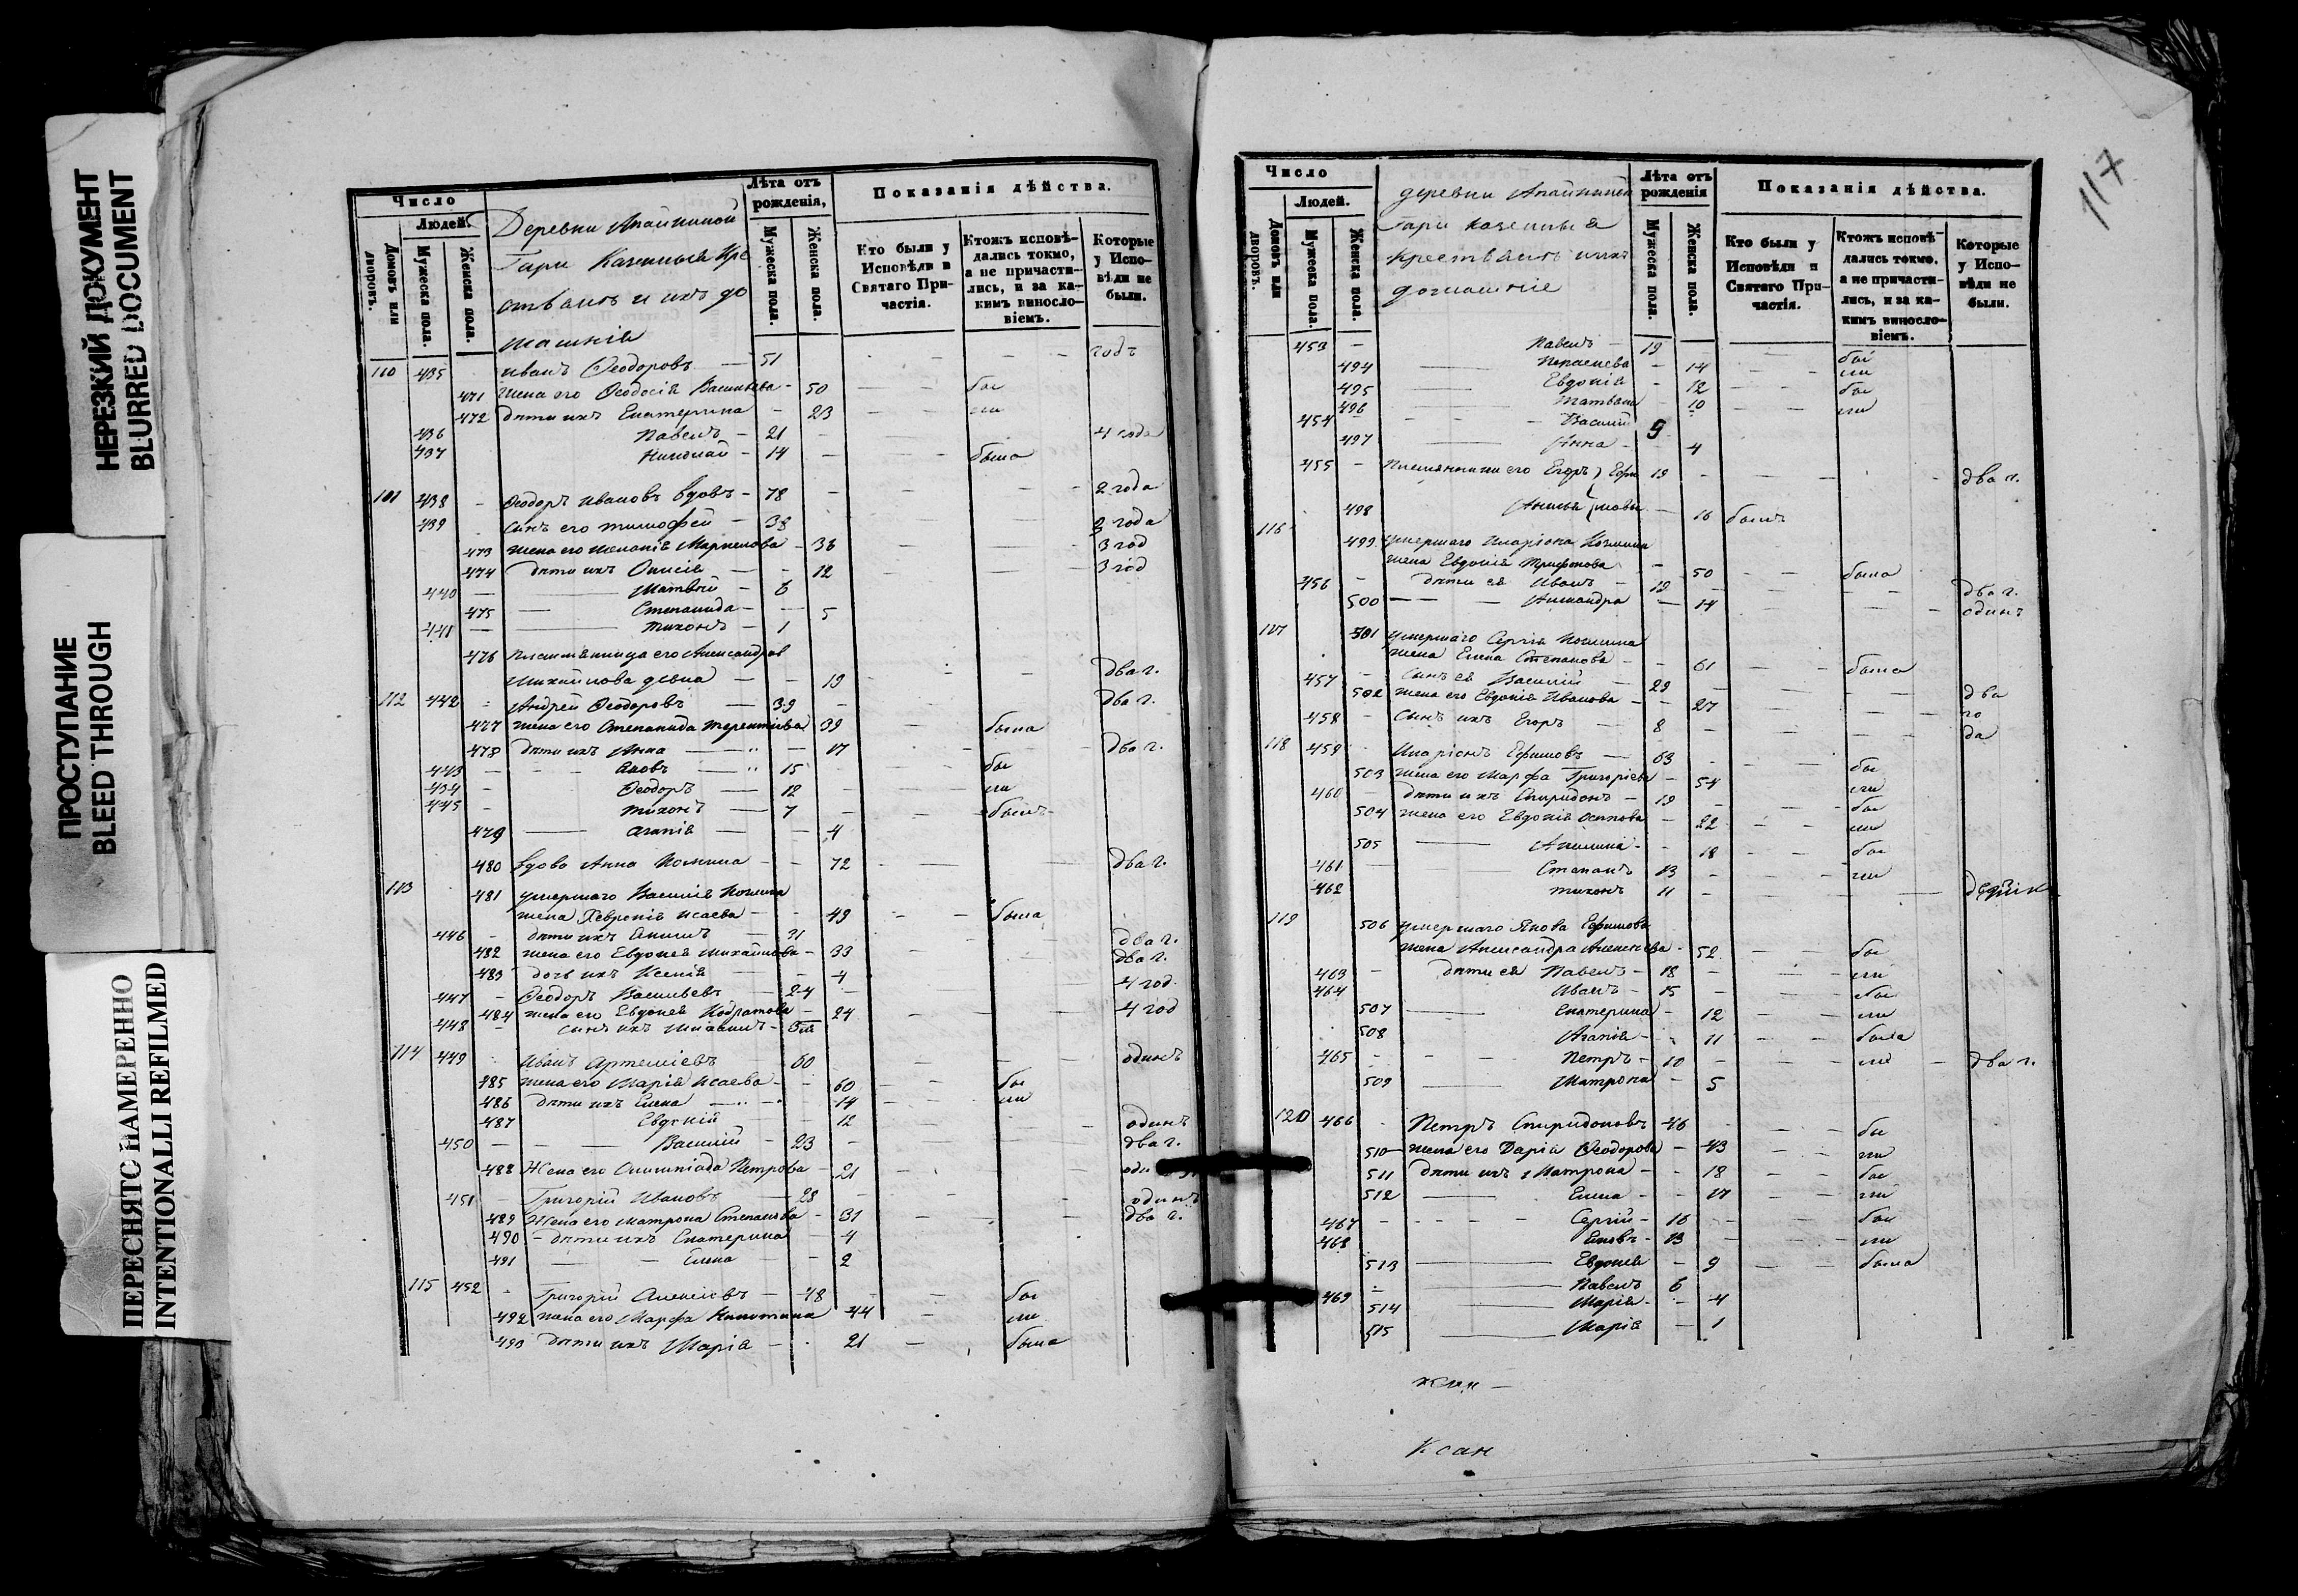 НЕРЕЗКИЙ ДОКУМЕНТ
BLURRED DOCUMENT
ПРОСТУПАНИЕ
BLEED THROUGH
ПЕРЕСНЯТО НАМЕРЕННО
INTENTIONALLI REFILMED
Число
Людей.
Домовъ или дворовъ.
Мужеска пола.
Женска пола.
Деревни
Гари Казенныя Кре
стьянъ и ихъ до
машнія
Лѣта отъ рожденія,
Мужеска пола.
Женска пола.
Показанія дѣйства.
Кто были у Исповѣди и Святаго Причастія.
Ктожъ исповѣдались токмо, а не причастились, и за какимъ винословіемъ.
Которые у Исповѣди не были.
110 435 Иванъ Ѳеодоровъ — 51 годъ
471 Жена его Ѳеодосія Васильева - 50 бы
472 дѣти ихъ Екатерина - 23 ли
436 Павелъ - 21 4 года
437 Николай - 14 была
111 438 - Ѳеодоръ Ивановъ вдовъ - 78 2 года
439 Сынъ его Тимофей - 38 2 года
473 жена его Маркелова - 36 3 год
474 дѣти ихъ Анисія - 12 3 год
440 Матвей - 6
475 Степанида - 5
441 Тихонъ - 1
476 племянница его Александра
Михайлова девка - 19 два г.
112 442 Андрей Ѳеодоровъ 39 два г.
477 жена его Степанида Терентіева 39 была
478 дѣти ихъ Анна — 17 два г.
443 Яковъ — 15 бы
434 Ѳеодоръ — 12 ли
445 Тихонъ — 7 былъ
479 Агапія — 4
480 вдова Анна Козмина - 72 два г.
113 481 умершаго Василія Козмина
жена Хевронія Исаева - 49 была
446 дѣти ихъ 31 два г.
482 жена его Евдокея Михайлова - 33 два г.
483 дочь ихъ Ксенія - 4 4 год.
447 - Ѳеодоръ Васильевъ - 24
484 жена его Евдокея - 24 4 год
448 сынъ ихъ
114 449 Иванъ Артеміевъ 60 одинъ
485 жена его Марія Исаева - 60 бы
486 дѣти ихъ Елена 14 ли
487 Евдокія 12 одинъ
450 Василій - 23 два г.
488 Жена его Олимпіада Петрова - 21
451 Григорій Ивановъ 28 одинъ
489 Жена его Матрона Степанова - 31 два г.
490 - дѣти ихъ Екатерина - 4
491 Елена - 2
115 452 Григорій Алексіевъ - 48 бы
492 жена его Марфа Никитина 44 ли
493 дѣти ихъ Марія - 21 была
117
Число
Людей.
Домовъ или дворовъ.
Мужеска пола.
Женска пола.
деревни
Гари казенныя
крестьянъ ихъ
домашніе
Лѣта отъ рожденія
Мужеска пола.
Женска пола.
Показанія дѣйства.
Кто были у Исповѣди и Святаго Причастія.
Ктожъ исповѣдались токмо, а не причастились, и за какимъ винословіемъ.
Которые у Исповѣди не были.
453 - Павелъ - 19
494 - 14 бы
495 Евдокія - 12 бы
496 Татьяна - 10 ли
454 Василій 9
497 Анна - 4
455 - Племянники его Егоръ 19 два г.
498 16 былъ
116 499 умершаго Иларіона Козмина
жена Евдокія Трифонова - 50 была
456 дѣти ея Иванъ - 19 два г.
500 Александра - 14 одинъ
117 501 умершаго Сергія Козмина
жена Елена Степанова - 61 была
457 Сынъ ея Василій - 29
502 Жена его Евдокія Иванова - 27 два
458 Сынъ ихъ Егоръ 8 го
да
118 459 Иларіонъ Ефимовъ — 63
503 жена его Марфа Григоріева - 54 бы
460 дѣти ихъ Спиридонъ - 19 ли
504 жена его Евдокія Осипова - 22 бы
505 Акилина - 18 бы
461 Степанъ 13 ли
462 Тихонъ 11
119 506 умершаго Якова Ефимова
жена Александра Алексѣева - 52 бы
463 дѣти ея Павелъ - 18 ли
464 Иванъ - 15 бы
507 Екатерина - 12 ли
508 Агапія - 11 была
465 Петръ - 10 два г.
509 Матрона - 5
120 466 Петръ Спиридоновъ 46 бы
510 жена его Дарія Ѳеодорова - 43 ли
511 дѣти ихъ Матрона - 18 бы
512 Елена - 17 ли
467 Сергій - 16 бы
468 Яковъ - 13 ли
513 Евдокея - 9 была
469 Павелъ 6
514 Марія - 4
515 Марія - 1
Ксан